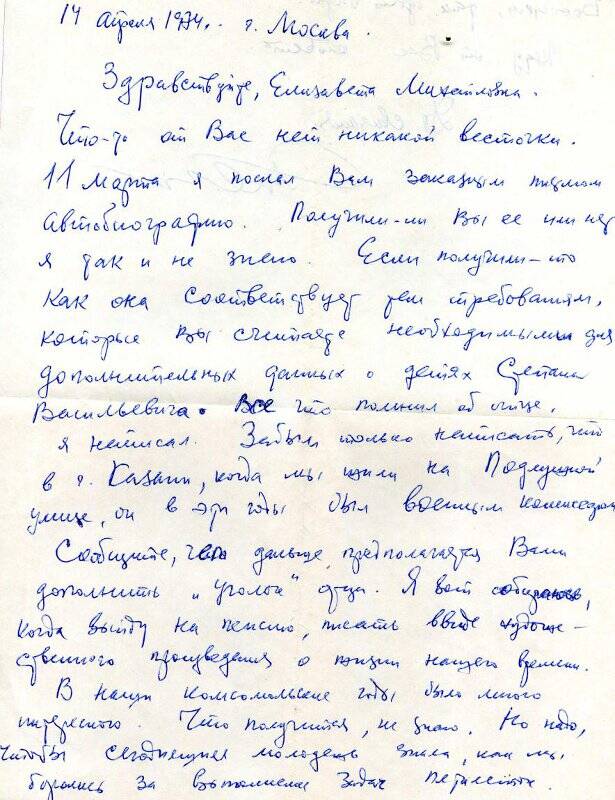 14 апреля 1974г. г. Москва.
Здравствуйте, Елизавета Михайловна.
Что-то от Вас нет никакой весточки.
11 марта я послал Вам заказным письмом
автобиографию. Получили-ли Вы ее или нет
я так и не знаю. Если получили-то
как она соответствует тем требованиям,
которые вы считаете необходимыми для
дополнительных данных о детях Степана
Васильевича. Все что помнил об отце,
я написал. Забыл только написать, что
в г. Казани, когда мы жили на Подлужной
улице, он в эти годы был военным комиссаром
Сообщите, чем дальше предполагается Вами
дополнить "уголок" отца. Я вот собираюсь,
когда выйду на пенсию, писать ввиде художе-
ственного произведения о жизни нашего времени.
В наши комсомольские годы было много
интересного. Что получится, не знаю. Но надо,
чтобы сегодняшняя молодежь знала, как мы
боролись за выполнение задач пятилетки.